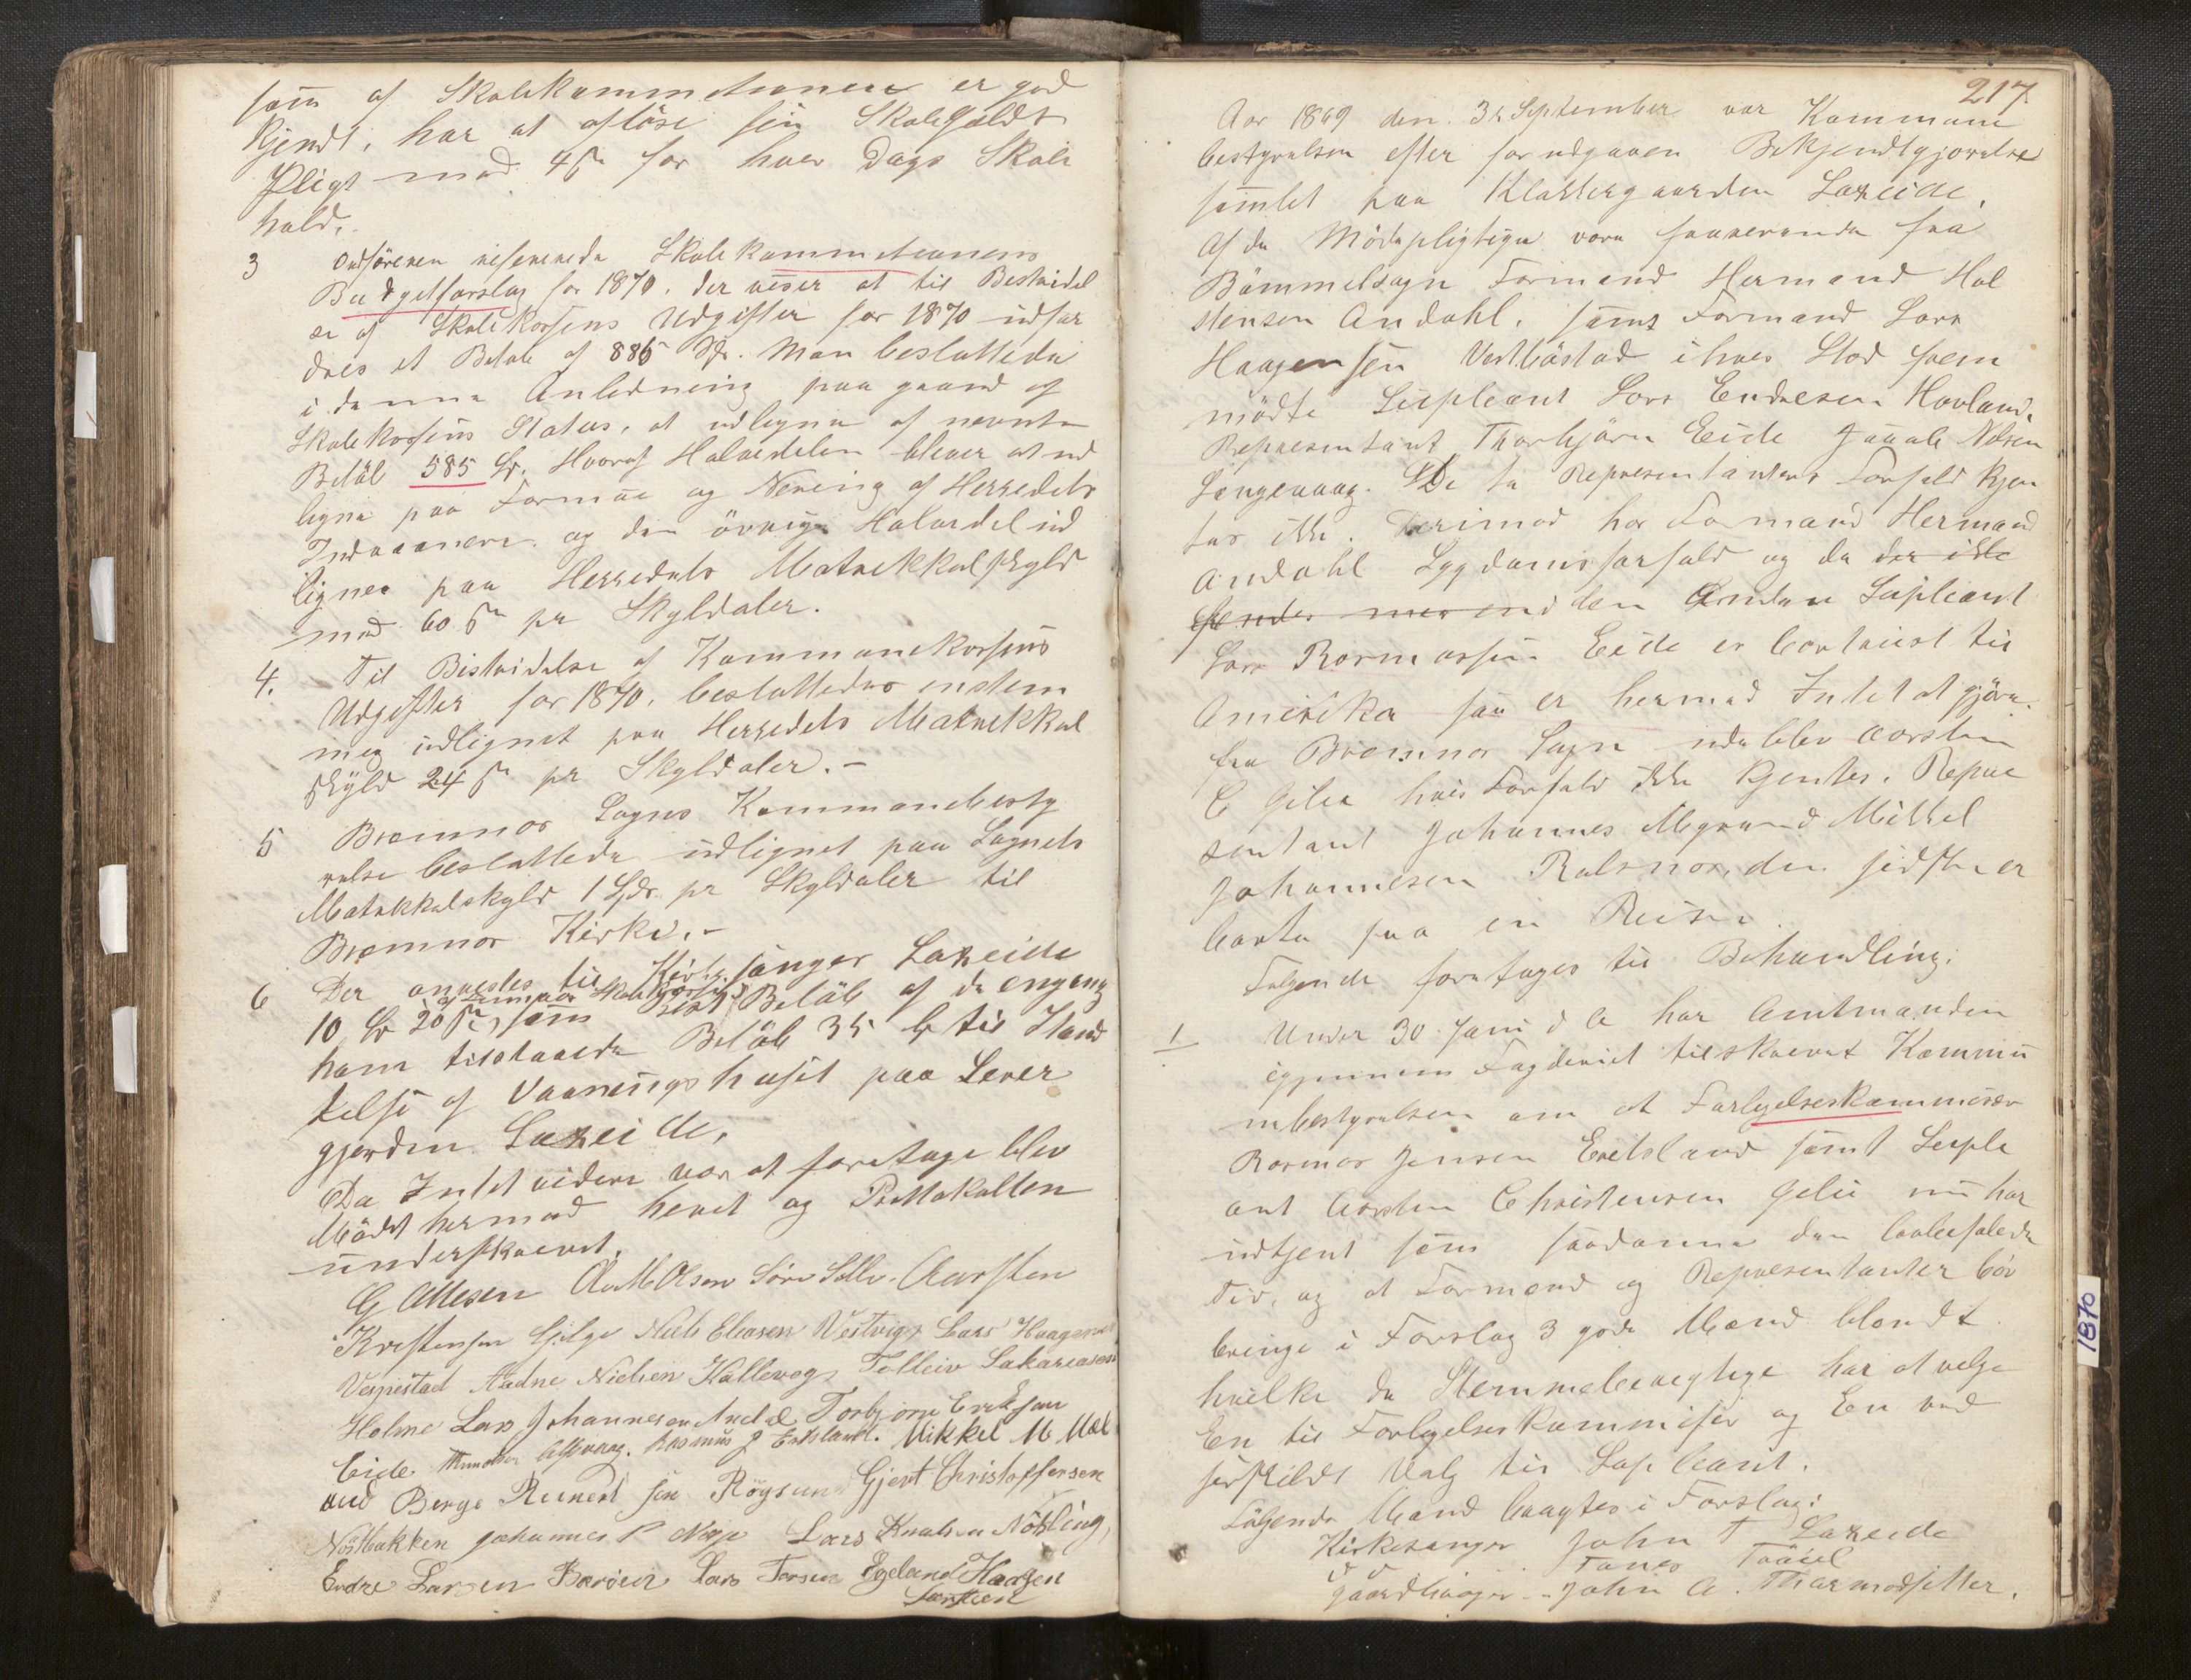 som af Skolekommissionen er god
kjendt, har at aflöse sin Skolegjelds
Pligt med 4 s for hver Dags Skole
hold.
3 Ordföreren refererede Skolekommissionens
Budgetforslag for 1870. der viser at til Bestridel
se af Skolekassens Udgifter for 1870 udfor
dres et Belöb af 885 Spd. Man besluttede
i denne Anledning paa grund af
Skolekassens Status, at udligne af nevnte
Belöb 585 Sp. Hvoraf Halvedelen bliver at ud
ligne paa Formue og Nering af Herredets
Indvaanere og den övrige Halvedel ud
lignes paa Herredets Matrikkelskyld
med 60 s pr Skyldaler.
4. Til Bestridelse af Kommunekassens
Udgifter for 1870. besluttedes enstem
mig udlignet paa Herredets Matrikkel
skyld 24 s pr Skyldaler. -
5 Bremnes Sogns Kommunebesty
relse besluttede udlignet paa Sognets
Matrikkelskyld 1 Spd. pr Skyldaler til
Bremnes Kirke. -
6 Der anvistes til Kirkesanger Laxeide
10 Sp 20 s, som Rest Belöb af de engang
ham tilstaaede Belöb 35 Sp til Istand
telse af Vaaningshuset paa Lerer
gjorden Laxeide.
Da Intet videre var at foretage blev
Mödet hermed hevet og Protokollen
underskrevet.
G Attesen Ole M Olsen Söre Selle. Aarsten
Kristensen Gjilge Niels Eliasen Vestvig Lars Haagensen
Vespestad Aadne Nielsen Kallevog Tolleiv Sakariasen
Holme Lars Johannesen Audal Torbjörn Eriksen
Eide Alsvaag. Rasmus J Eidsland. Mikkel M Mæl
and Berge Reinert sen Röysund Gjert Christoffersen
Nösbakken Johannes P Lars Knutsen Nökling,
Endre Larsen Baröen Lars Torsen Egeland Haagen
Larssen
217
Aar 1869 den 3de September var Kommune
bestyrelsen efter forudgaaen Bekjendtgjørelse
samlet paa Klokkergaarden Laxeide.
Af de Mödepligtige vare fraverende fra
Bömmelsogn Formand Hermand Hal
stensen Andahl. samt Formand Lars
Haagensen Vestböstad i hvis Stod frem
mödte Supleant Lars Endresen Hovland.
Representant Thorbjörn Eide Nilsen
Langevaag. De to Representanters Forfald kjen
tes ikke. Derimod har Formand Hermand
Andahl Sygdomsforfald og da der ikke
findes mer end den Anden Supleant
Lars Rasmussen Eide er bortreist til
Amerika saa er hermed Intet at gjöre.
fra Bremnes Sogn udeblev Aarsten
C Gilie hvis Forfald ikke kjentes. Repre
sentant Johannes Mikkel
Johannesen den sidste er
borte paa en Reise.
Fölgende foretages til Behandling:
1 Under 30 Juni d A har Amtmanden
igjennem Fogderiet tilskrevet Kommu
nebestyrelsen om at Forligelseskommissær
Rasmus Jensen Eidsland samt Suple
ant Aarsten Christensen Gilie nu har
udtjent som saadanne den lovbefalede
Tid, og at Formend og Representanter bör
bringe i Forslag 3 gode Mænd blandt
hvilke de Stemmeberegtige har at velge
En til Forligelseskommisær og En ved
serskildt Valg til Supleant.
Fölgende Mænd bragtes i Forslag:
Kirkesanger John T Laxeide
Gaardbruger - John A. Thormodsetter.